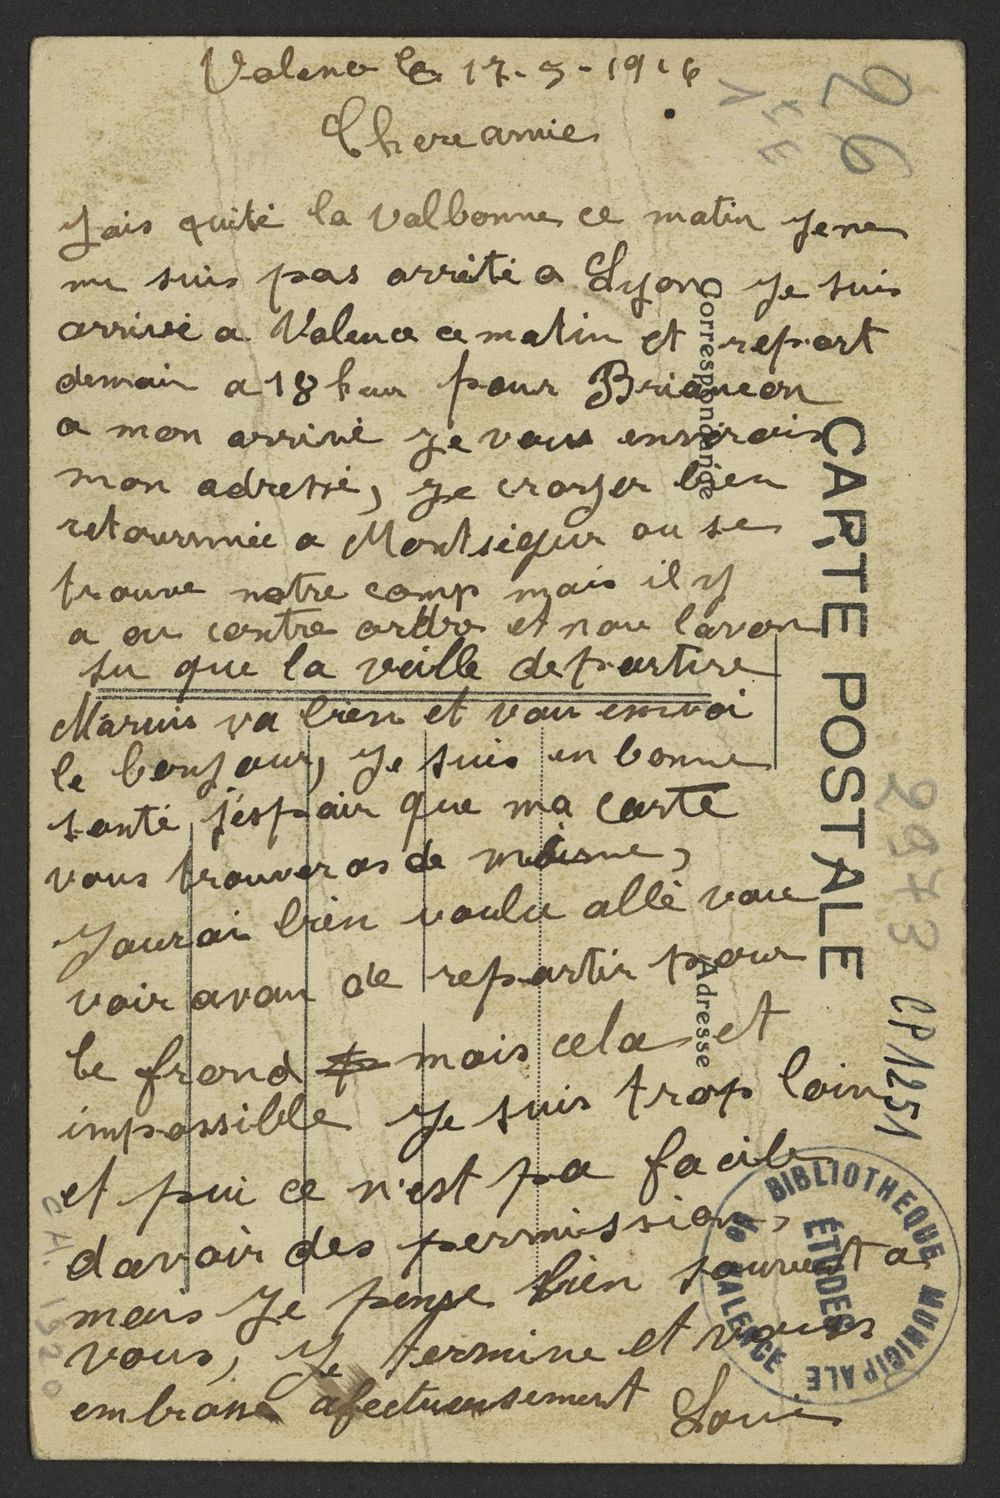 Valence le 17-5-1916
Chere amie
Jais quité la Valbonne ce matin Je ne
me suis pas arrité a Lyon Je suis
arrivé a Valence ce matin et repart
demain a 18 heur pour Briancon
a mon arrivé Je vous enverais
mon adresse, Je croyer bien
retournnée a Montsegur ou se
trouve notre camp mais il y
a eu contre ordre et nou lavon
su que la veille de partire
Marius va bien et vou envoi
le bonjour, Je suis en bonne
santé, J'espair que ma carte
vous trouveras de maisme,
Jaurai bien voulu allé vou
voir avan de repartir pour
le frond mais cela et
impossible Je suis trop loin
et pui ce n'est pa facile
davoir des permission,
mais Je pense bien souvent a
vous, Je termine et vous
embrasse afectueusement Louis
Correspondance
CARTE POSTALE
Adresse
26
2973
CP1251
BIBLIOTHEQUE MUNICIPALE
DE VALENCE
ÉTUDES